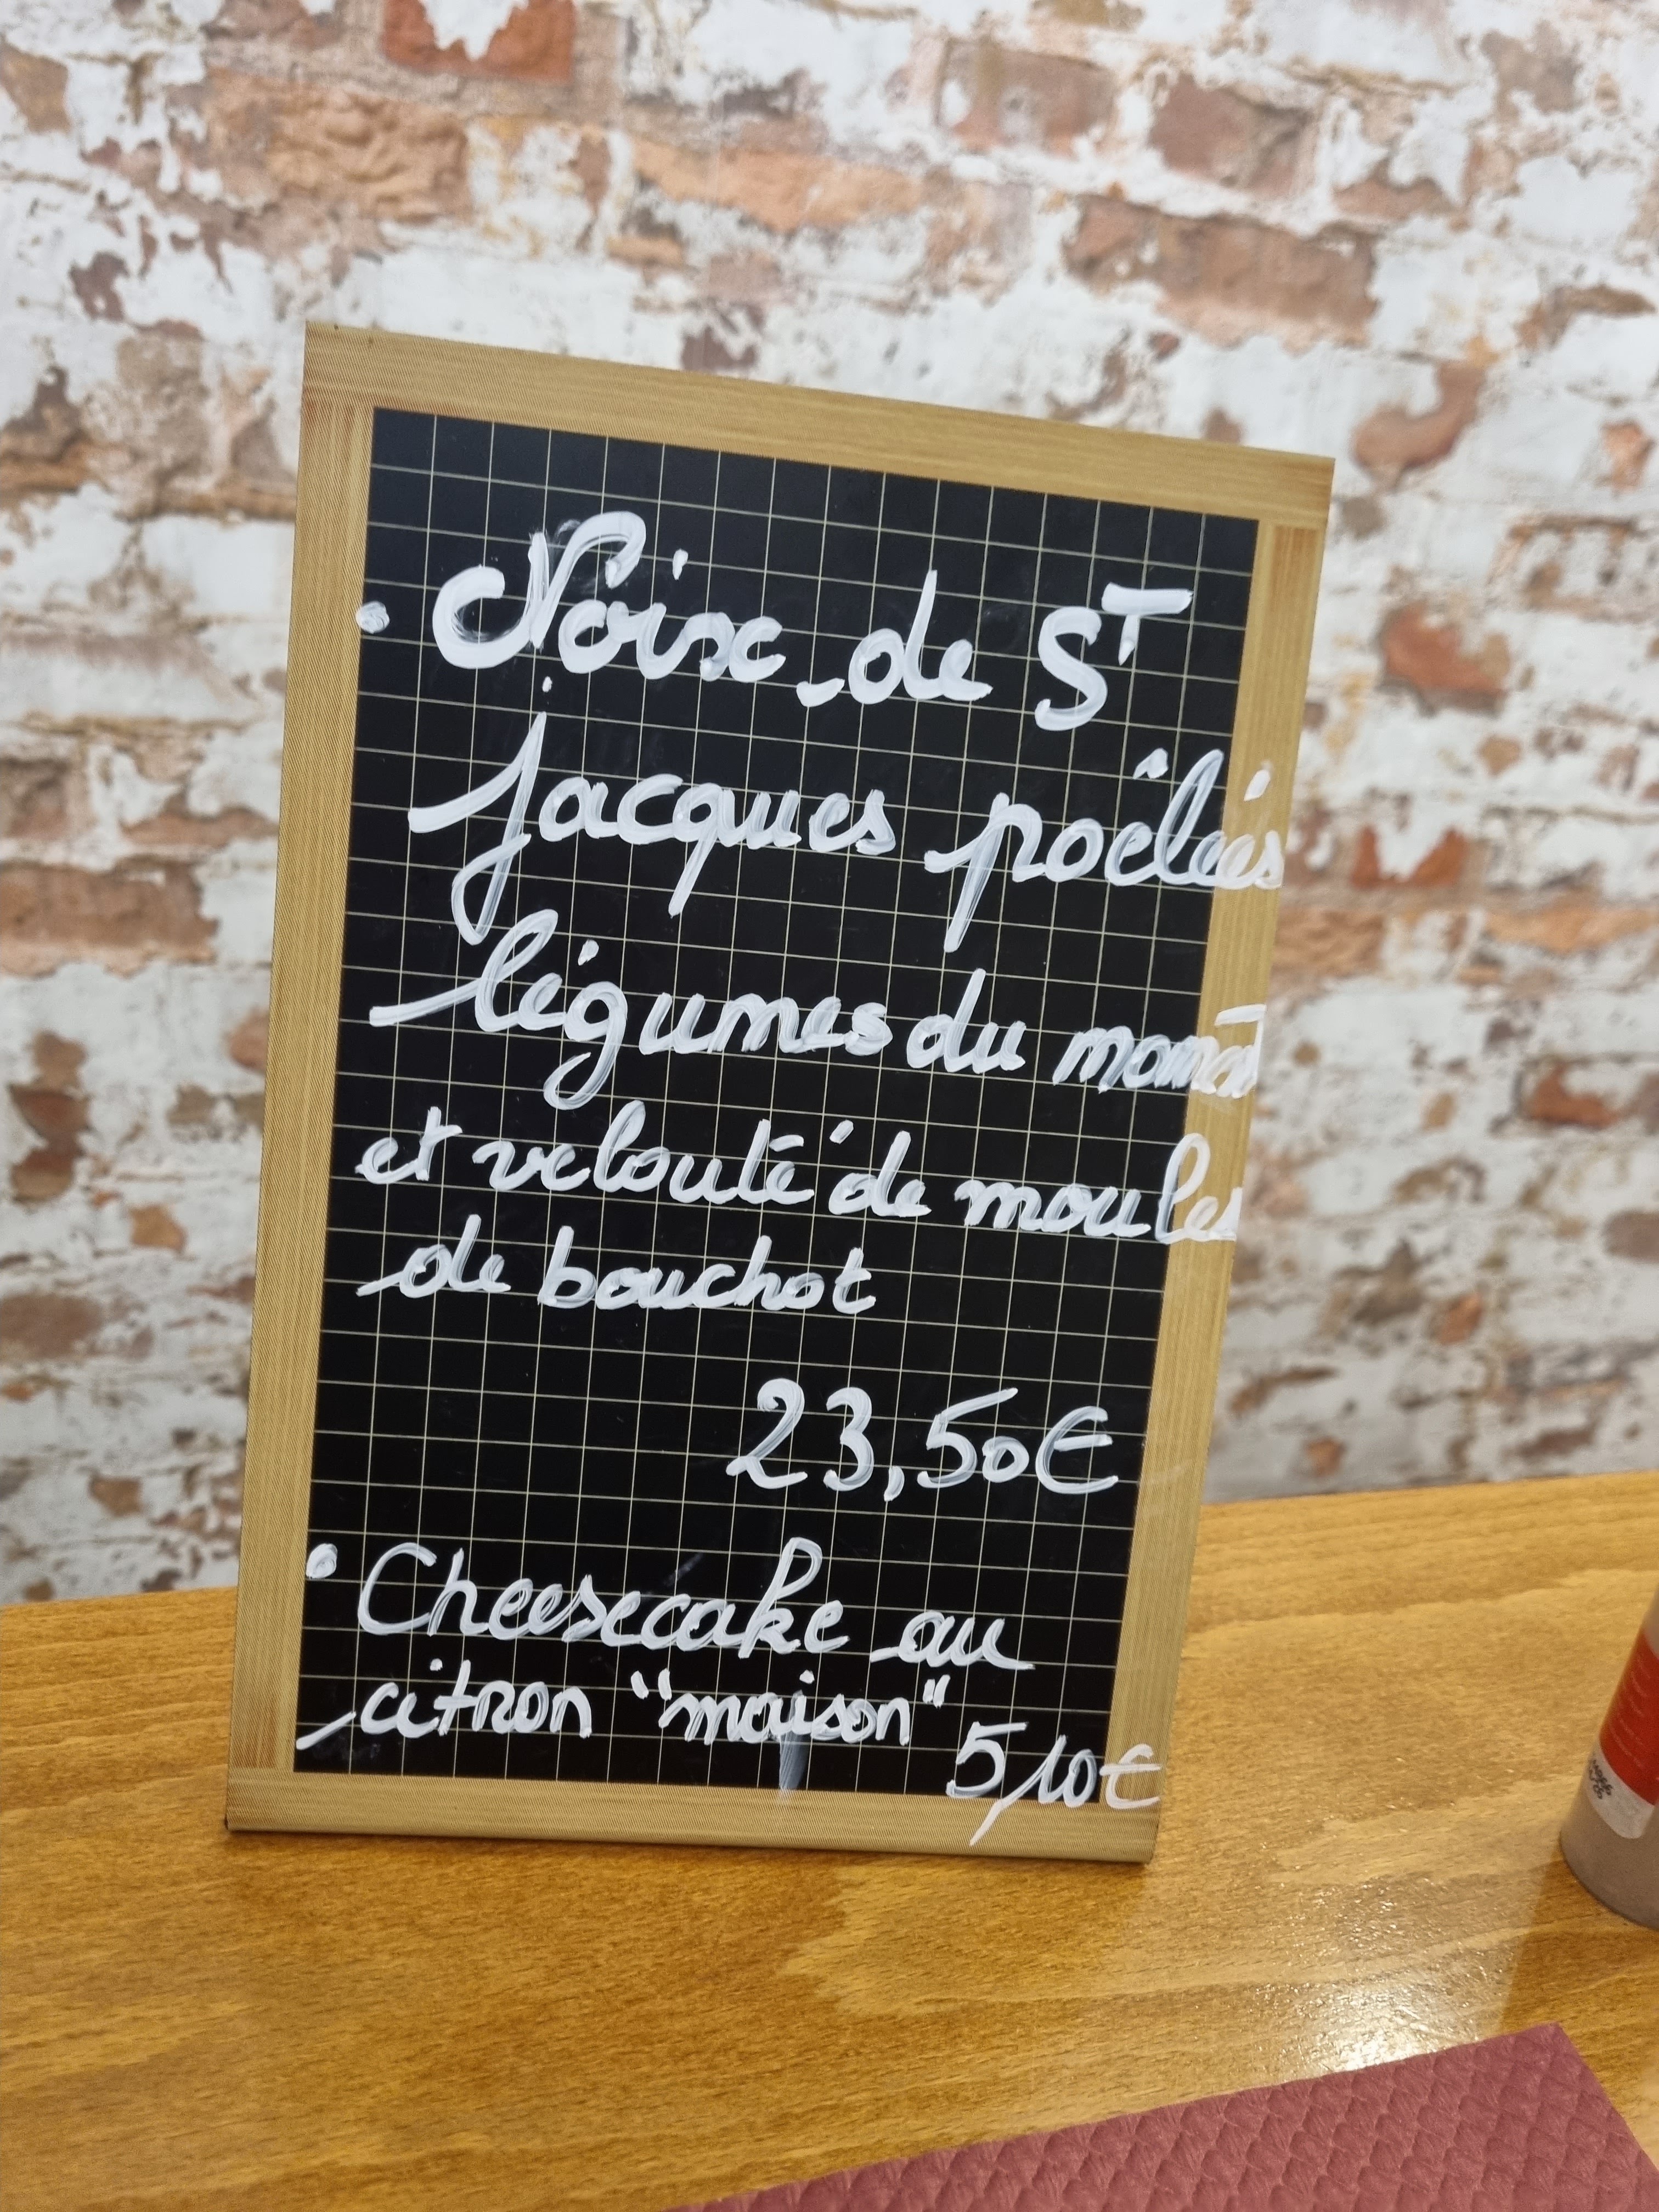 • Noix de St
Jacques poêlées
légumes du momt
et velouté de moules
de bouchot
23,50€
• Cheesecake au
citron "maison"
5,10€